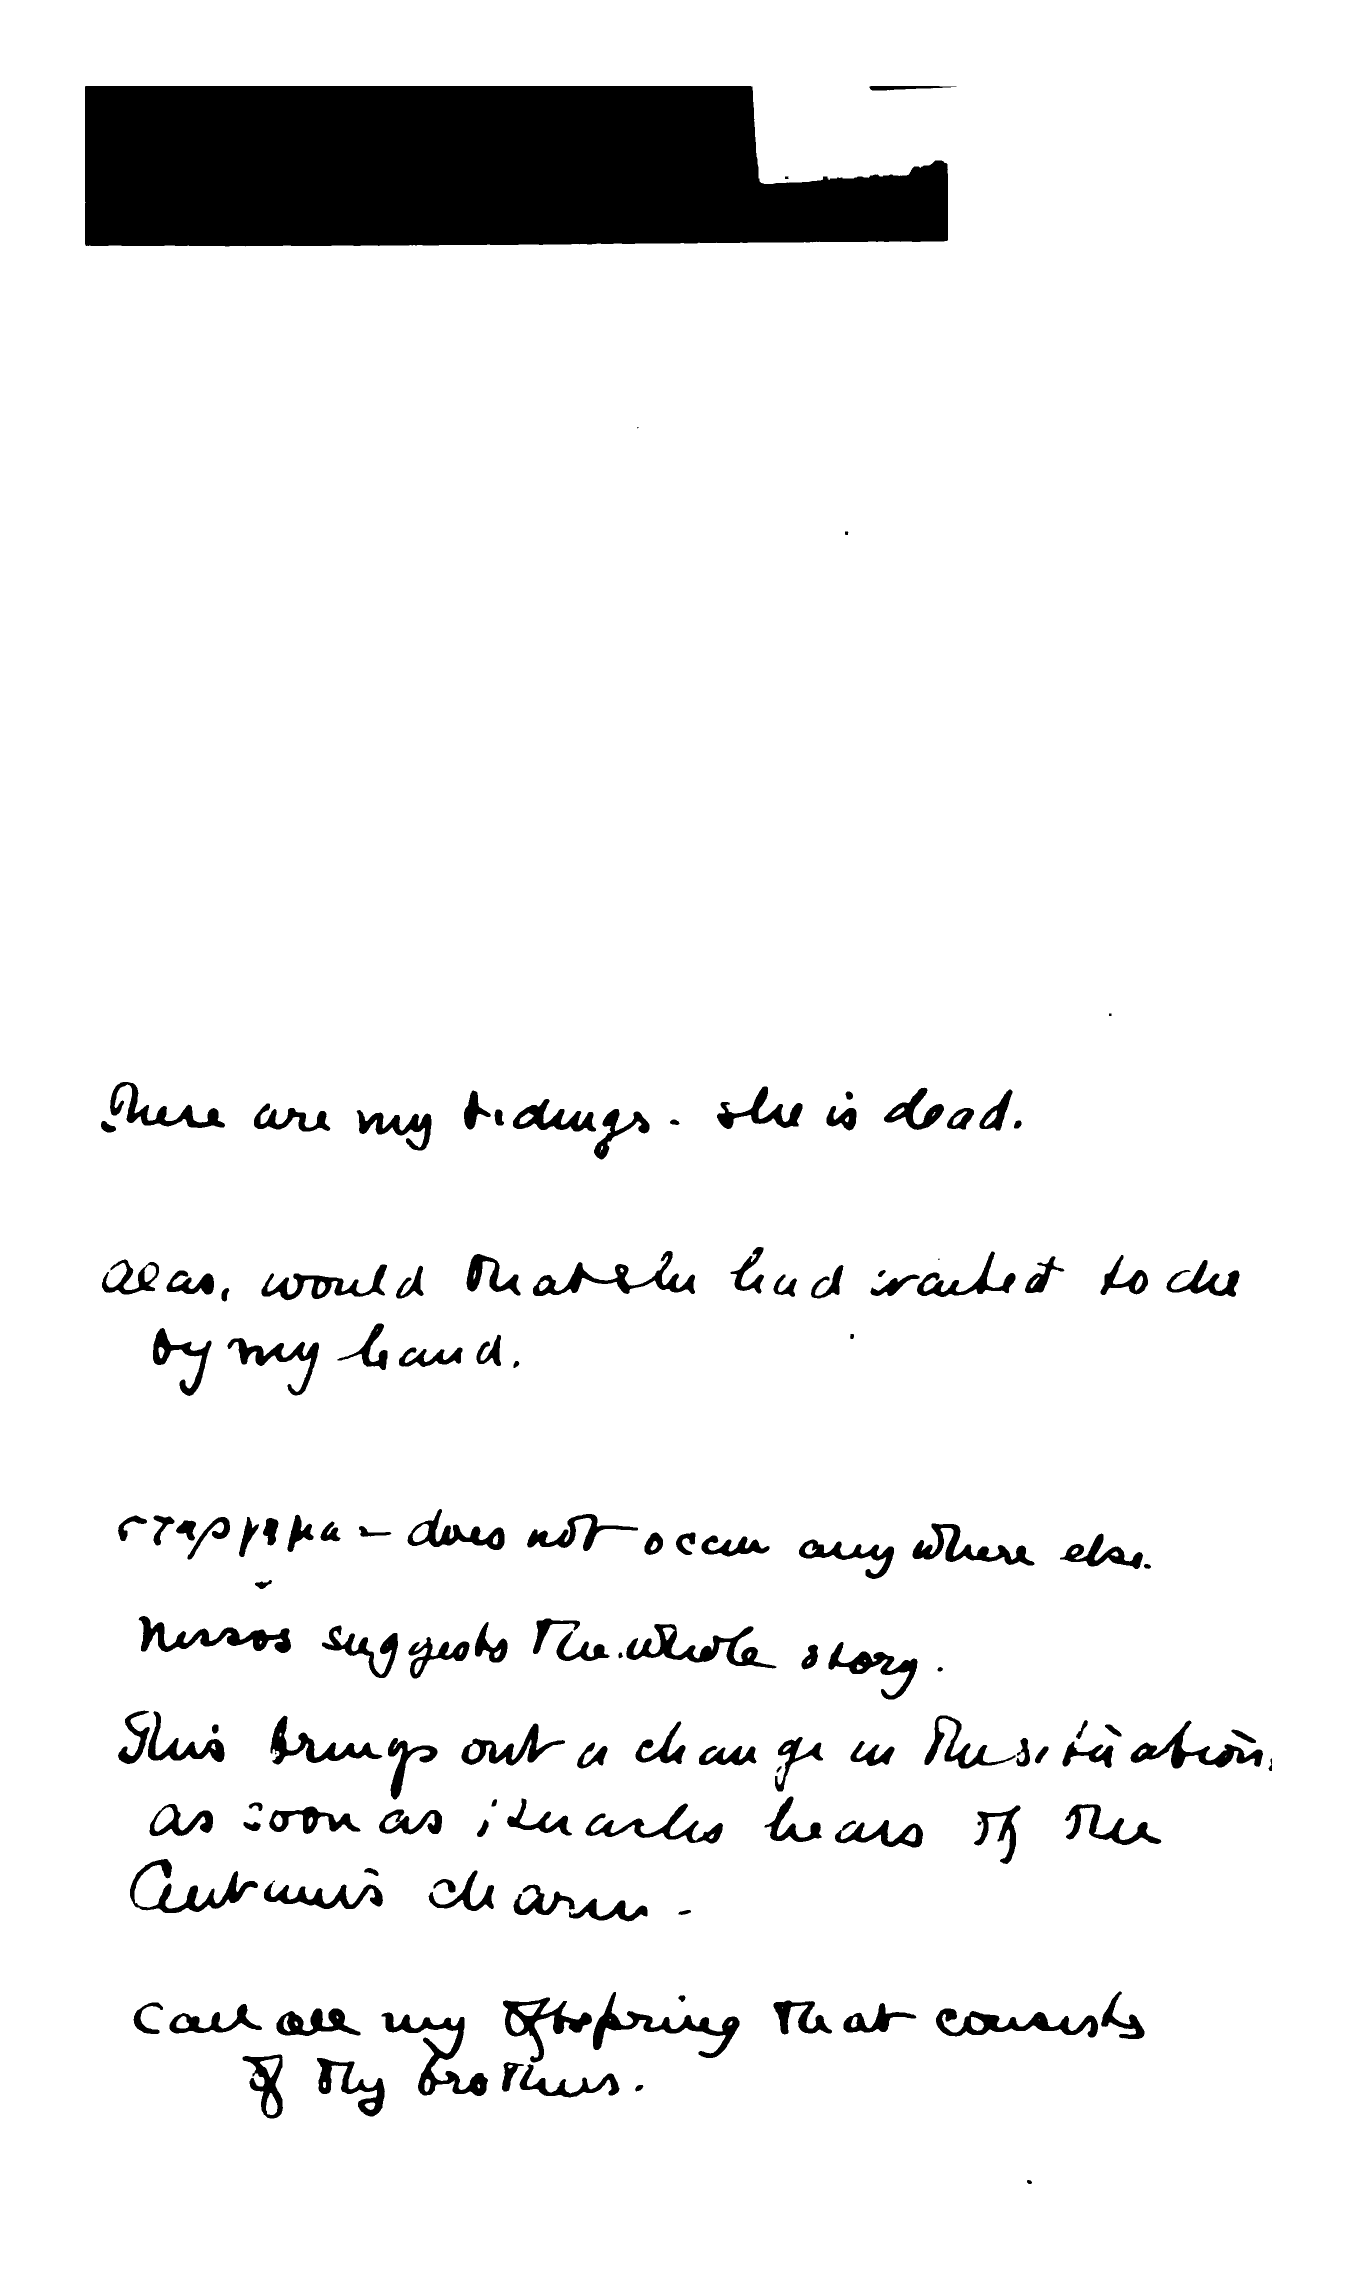 These are my tidings. She is dead.
Alas, would that she had waited to die
by my hand.
στεργημα - does not occur anywhere else.
Nessos suggests the whole story.
This brings out a change in the situation,
as soon as Heracles hears of the
Centaur's charm -
Call all my offspring that consists
of thy brothers.